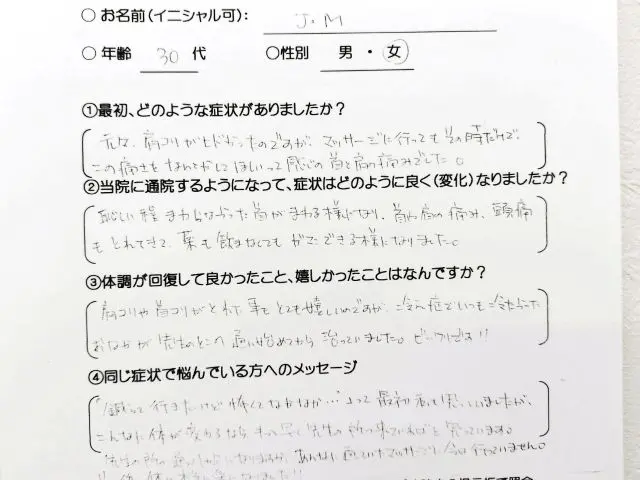 ○ お名前(イニシャル可): J・M
○ 年齢 30 代 ○性別 男 ・ 女
①最初、どのような症状がありましたか?
元々、肩コリがヒドかったのですが、マッサージに行ってもその時だけで、
この痛さをなんとかしてほしいって感じの首と肩の痛みでした。
②当院に通院するようになって、症状はどのように良く(変化)なりましたか?
恥しい程 まわらなかった首がまわる様になり、首や肩の痛み、頭痛
もとれてきて、薬も飲まなくても がまんできる様になりました。
③体調が回復して良かったこと、嬉しかったことはなんですか?
肩コリや首コリがとれた事もとても嬉しいのですが、冷え症でいつも冷たかった
おなかが 先生のとこの 通い始めてから 治っていました。ビックリです!!
④同じ症状で悩んでいる方へのメッセージ
"鍼って行きたいけど怖くてなかなか…"って最初私も思っていましたが、
こんなに体が変わるなら もっと早く先生の所へ来ていればと思っています。
先生の所へ あんなに通っていたマッサージに今は行っていません。